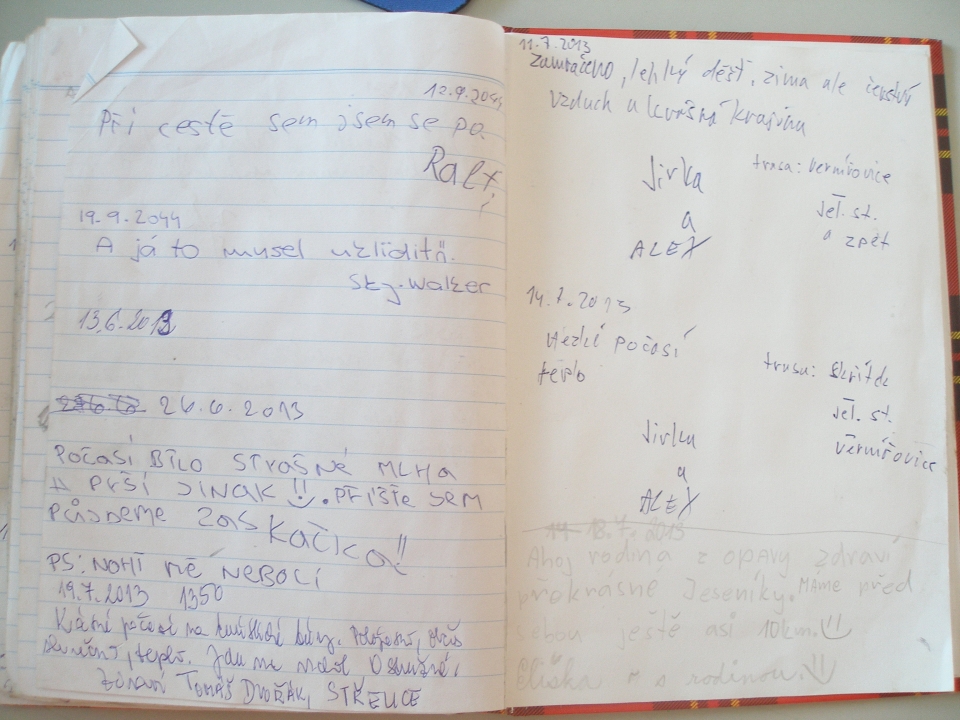 12.9.2044
Při cestě sem jsem se po
Ralf,
19.9.2044
A já to musel uzlíditň.
Sky.walker
13.6.2013
26.6.2013
POČASÍ BÍLO STRAŠNÉ MLHA
A PRŠÍ JINAK !! PŘÍŠTE SEM
PŮJDEME ZAS KAČKA!!
PS: NOHÍ MĚ NEBOLÍ
19.7.2013 1350
Krásné počasí na
slunečné, teplo. Jdu na
Zdraví Tomáš Dvořák, STŘELICE
11.7.2013
Zamračeno, lehký déšť, zima ale čerství
vzduch a krajina
Jirka
a
ALEX
trasa: Vernířovice
Jel. st.
a zpět
14.7.2013
Hezké počasí
teplo
Jirka
a
ALEX
trasa: Skřítek
Jel. st.
Vernířovice
14 18.7. 2013
Ahoj rodina z opavy zdraví
překrásné Jeseníky. Máme před
sebou ještě asi 10km.
Eliška s rodinou.